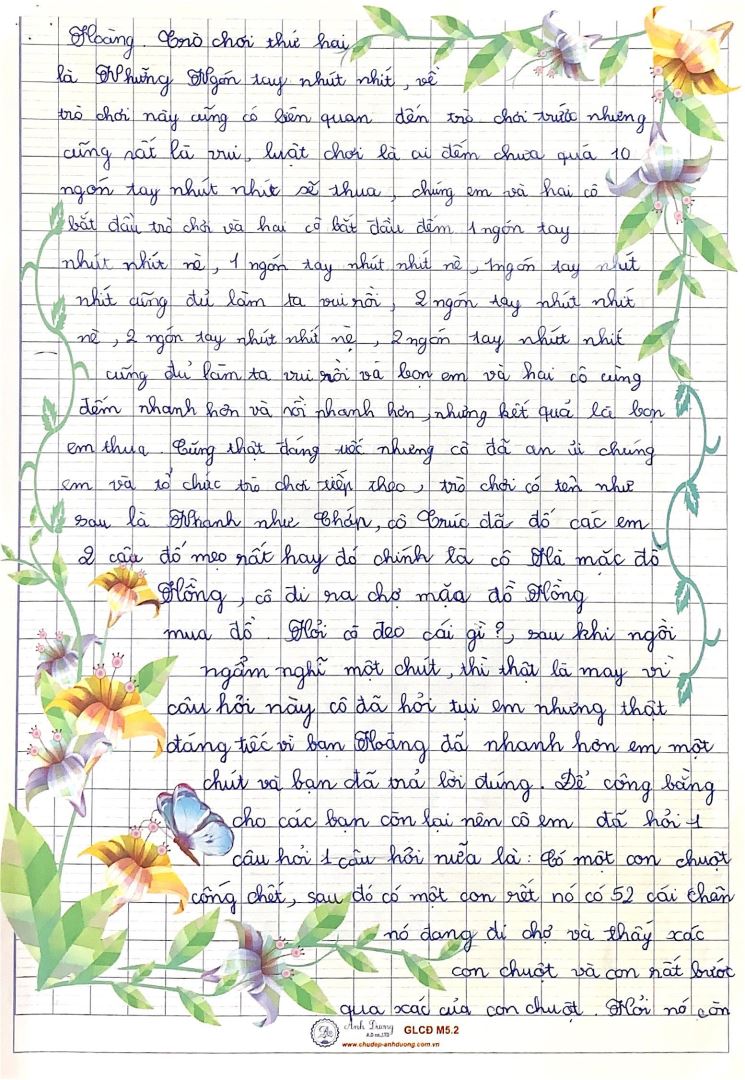 Hoàng. Trò chơi thứ hai
là Những Ngón tay nhút nhít, về
trò chơi này cũng có liên quan đến trò chơi trước nhưng
cũng rất là vui, luật chơi là ai đếm chưa quá 10
ngón tay nhút nhít sẽ thua, chúng em và hai cô
bắt đầu trò chơi và hai cô bắt đầu đếm 1 ngón tay
nhút nhít nè, 1 ngón tay nhút nhít nè, 1 ngón tay nhút
nhít cũng đủ làm ta vui rồi, 2 ngón tay nhút nhít
nè, 2 ngón tay nhút nhít nè, 2 ngón tay nhút nhít
cũng đủ làm ta vui rồi và bọn em và hai cô cùng
đếm nhanh hơn và nói nhanh hơn, nhưng kết quả là bọn
em thua. Cũng thật đáng tiếc nhưng cô đã an ủi chúng
em và tổ chức trò chơi tiếp theo, trò chơi có tên như
sau là Nhanh như Chớp, cô Trúc đã đố các em
2 câu đố mẹo rất hay đó chính là cô Hà mặc đồ
Hồng, cô đi ra chợ mặc đồ Hồng
mua đồ. Hỏi cô đeo cái gì?, sau khi ngồi
ngẫm nghĩ một chút, thì thật là may vì
câu hỏi này cô đã hỏi tụi em nhưng thật
đáng tiếc vì bạn Hoàng đã nhanh hơn em một
chút và bạn đã trả lời đúng. Để công bằng
cho các bạn còn lại nên cô em đã hỏi 1
câu hỏi 1 câu hỏi nữa là: Có một con chuột
cống chết, sau đó có một con rết nó có 52 cái chân
nó đang đi chợ và thấy xác
con chuột và con rết bước
qua xác của con chuột. Hỏi nó còn
Ánh Dương
GLCĐ M5.2
www.chudep-anhduong.com.vn